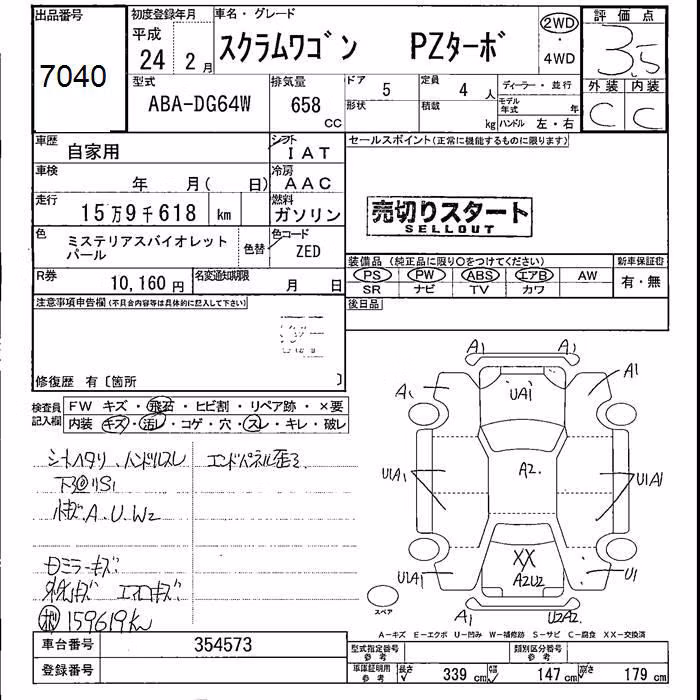 出品番号
7040
初度登録年月
平成
24年 2月
車名・グレード
スクラムワゴン PZターボ
2WD
・
4WD
評価点
3.5
外装 内装
C C
型式
ABA-DG64W
排気量
658
CC
ドア
5
形状
定員
4人
積載
kg
ディーラー・並行
モデル年式 年
ハンドル 左・右
車歴
自家用
シフト
IAT
車検
年 月( 日)
冷房
AAC
走行
15万9千618 km
燃料
ガソリン
色
ミステリアスバイオレット
パール
色替
色コード
ZED
R券
10,160円
名変通知期限
月 日
セールスポイント(正常に機能するものに限ります)
売切りスタート
SELLOUT
装備品(純正品に限り○をつけてください)
PS PW ABS エアB AW
SR ナビ TV カワ
新車保証書
有・無
後日品
注意事項申告欄(不具合内容等は具体的に記入して下さい)
修復歴 有〔箇所 〕
検査員記入欄
FW キズ・飛石・ヒビ割・リペア跡・×要
内装 キズ・汚レ・コゲ・穴・スレ・キレ・破レ
シートヘタリ、ハンドルスレ
エンドパネル歪ミ
下廻りS1
小キズ A.U.W2
Dミラーキズ
エアロキズ
159619km
A1 A1
A1 UA1 A1
U1A1 A2. U1A1
XX
U1A1 A2U2 U1
A1 U2A2.
スペア
A-キズ E-エクボ U-凹み W-補修跡 S-サビ C-腐食 XX-交換済
車台番号
354573
登録番号
型式指定番号
参考
類別区分番号
参考
車庫証明用
参考
長さ 339cm 幅 147cm 高さ 179cm